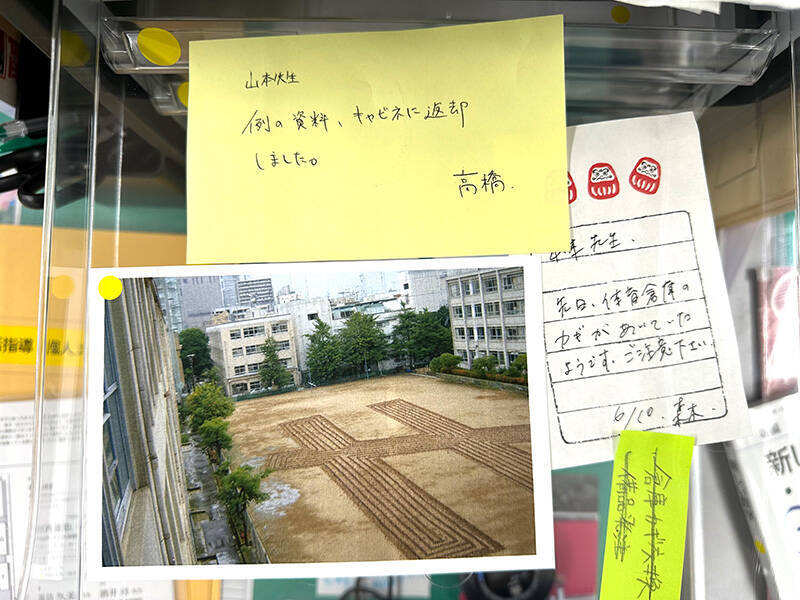 山本先生
例の資料、キャビネに返却
しました。
高橋.
先生.
先日、体育倉庫の
カギがあいていた
ようです。ご注意下さい
6/10.
倉庫カギ交換
備品発注
指導
個人
新し